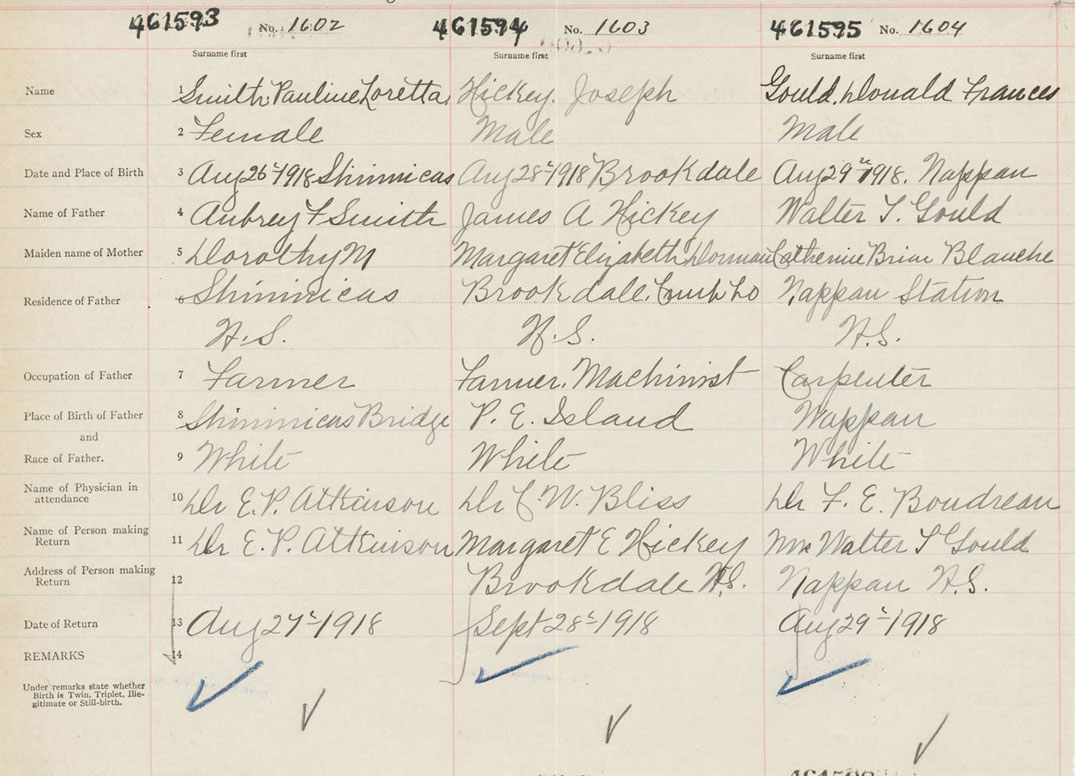 461593 No. 1602 461594 No. 1603 461595 No. 1604
Surname first Surname first Surname first
Name 1 Smith Pauline Loretta Hickey. Joseph Gould, Donald Frances
Sex 2 Female Male Male
Date and Place of Birth 3 Aug 26th 1918 Shinimicas Aug 28th 1918 Brookdale Aug 29th 1918. Nappan
Name of Father 4 Aubrey F Smith James A Hickey Walter T. Gould
Maiden name of Mother 5 Dorothy M Margaret Elizabeth Dorman Catherine Brian Blanche
Residence of Father 6 Shinimicas Brookdale, Cumb Co Nappan Station
N.S. N.S. N.S.
Occupation of Father 7 Farmer Farmer, Machinist Carpenter
Place of Birth of Father 8 Shinimicas Bridge P. E. Island Nappan
and
Race of Father. 9 White White White
Name of Physician in
attendance 10 Dr E. P. Atkinson Dr C. W. Bliss Dr F. E. Boudreau
Name of Person making
Return 11 Dr E. P. Atkinson Margaret E Hickey Mrs Walter T Gould
Address of Person making
Return 12 Brookdale N.S. Nappan N.S.
Date of Return 13 Aug 27th 1918 Sept 28th 1918 Aug 29th 1918
REMARKS 14
Under remarks state whether
Birth is Twin, Triplet, Ille-
gitimate or Still-birth.